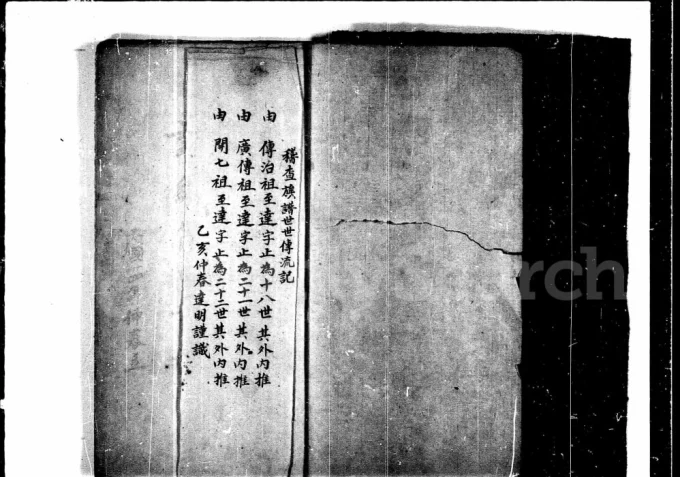 稽查族譜世世傳流記
由 傳治祖至達字止為十八世其外內推
由 廣傳祖至達字止為二十一世其外內推
由 開七祖至達字止為二十二世其外內推
乙亥仲春達明謹識